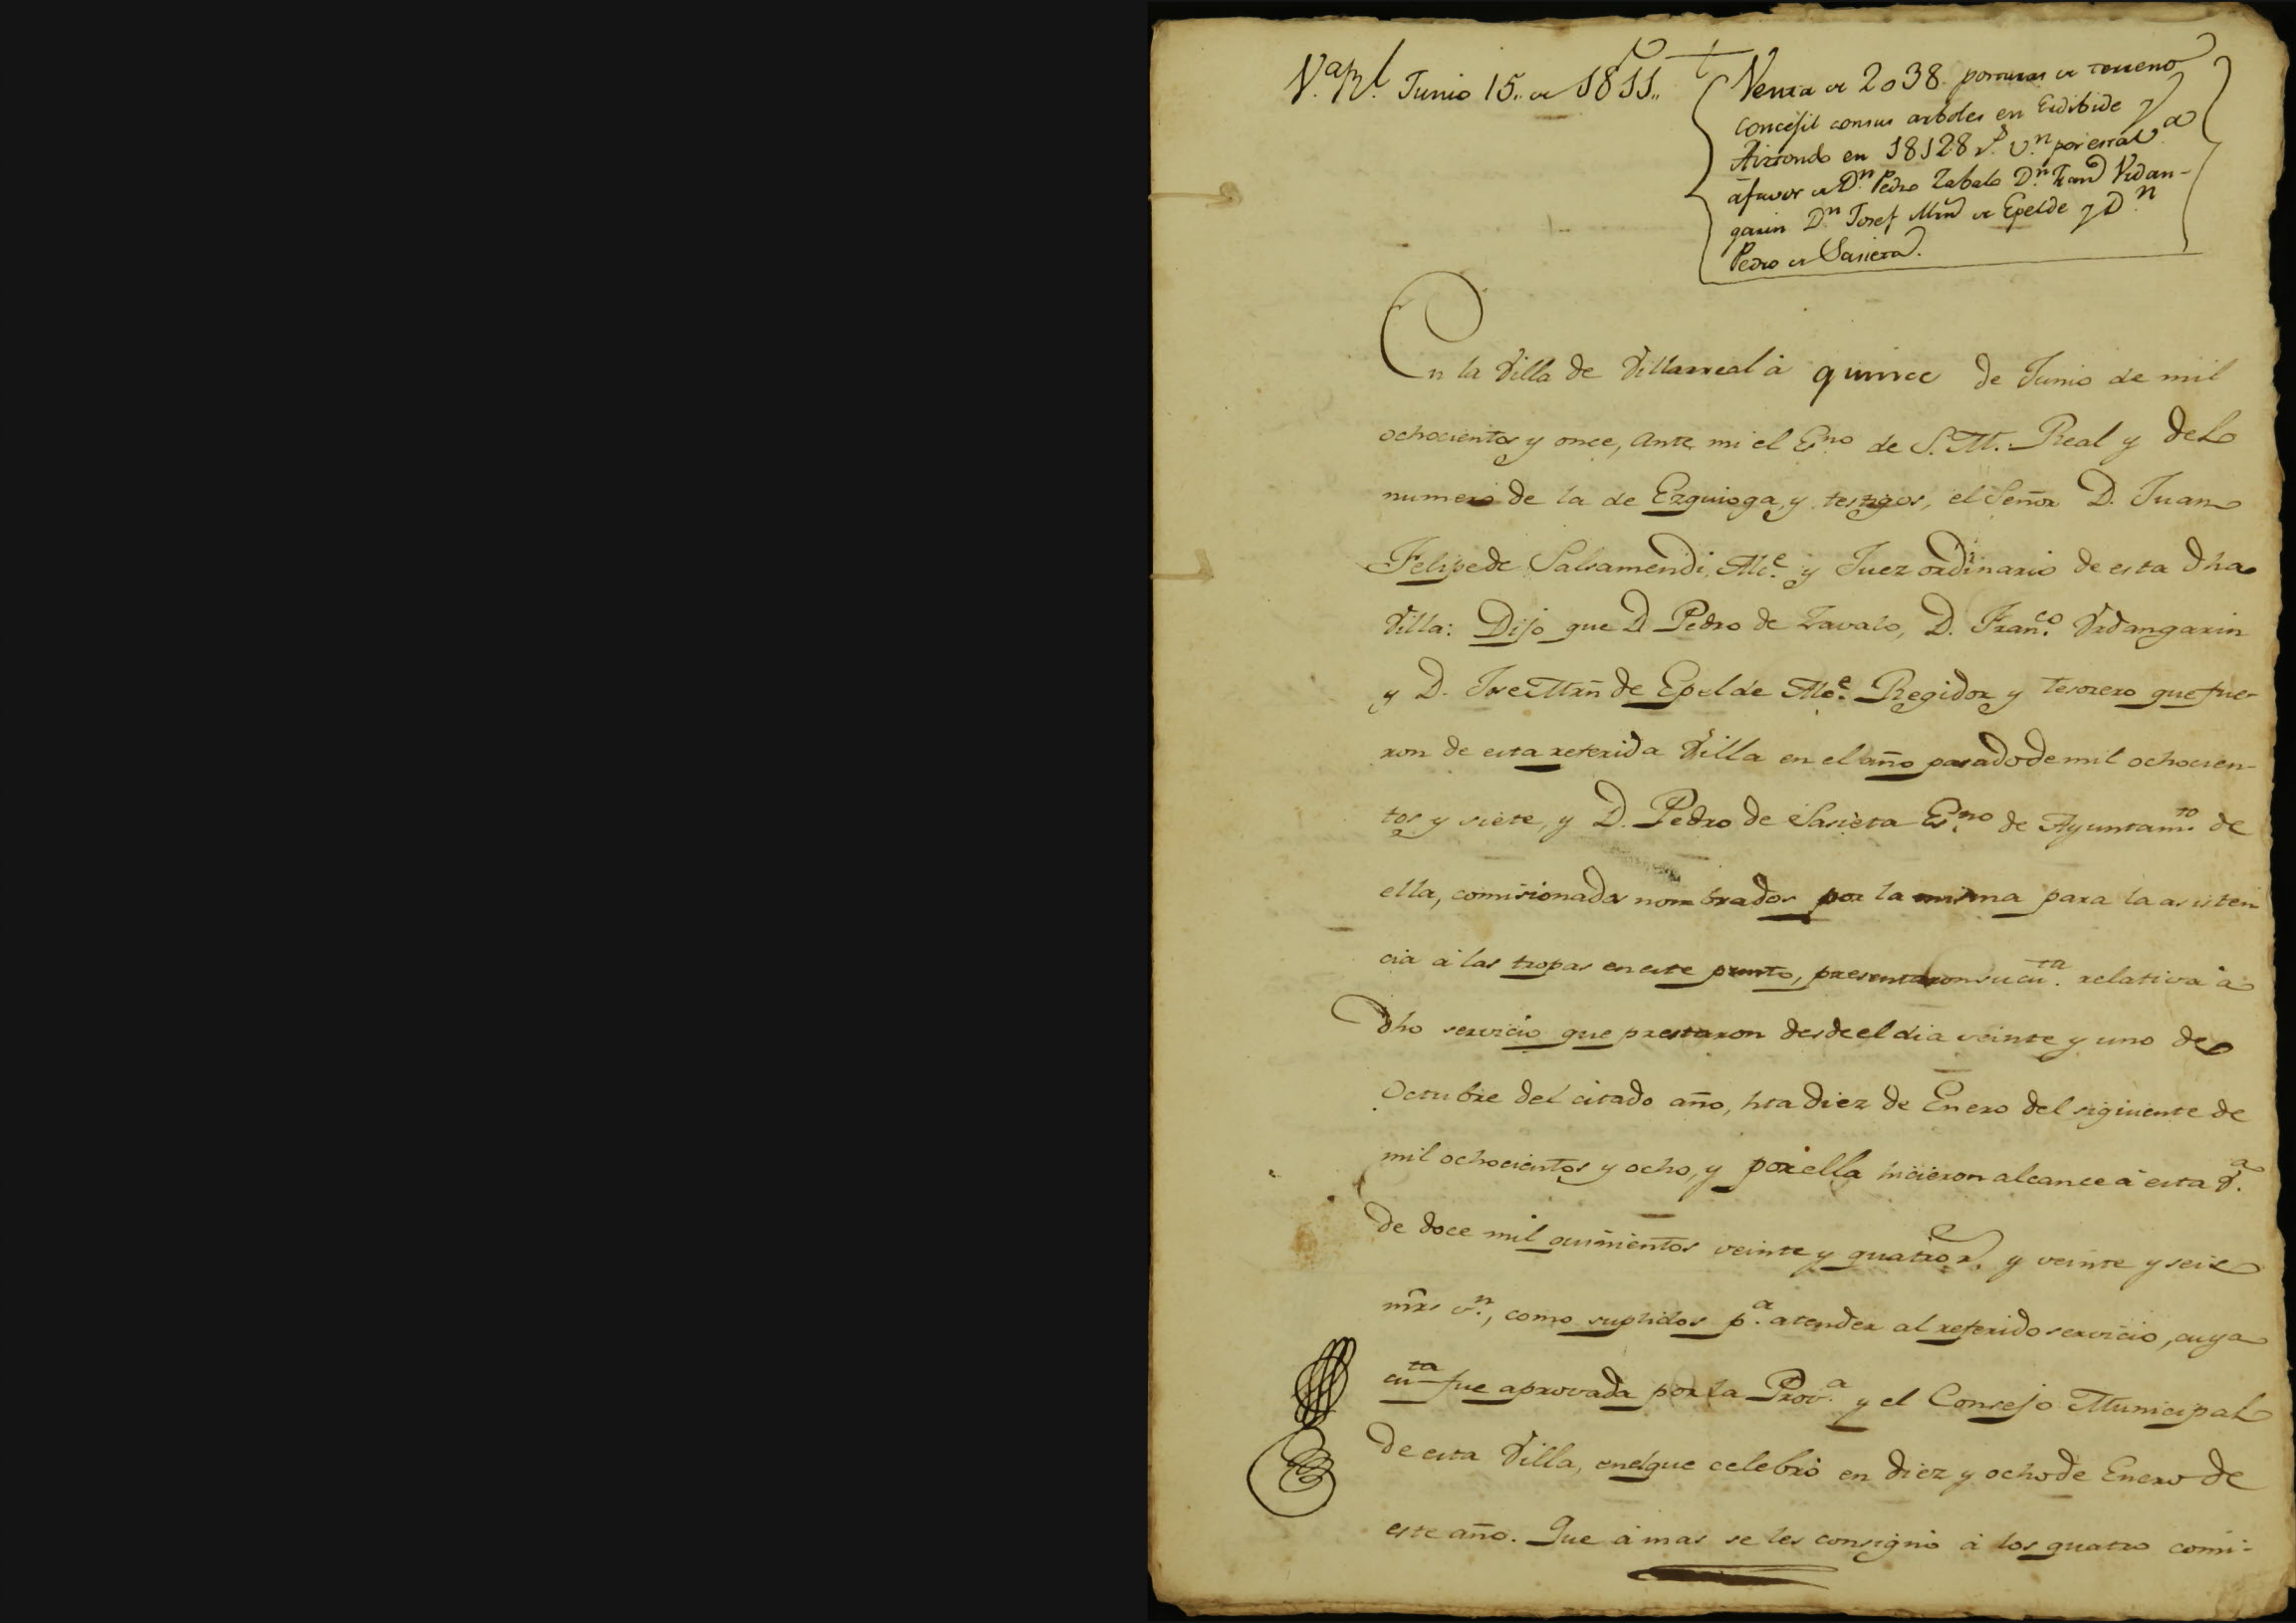 V.ª R.l Junio 15,, de 1811,,
Venta de 2038 posturas de terreno
concejil con sus arboles en Eidibide y
Airtondo en 18128 r.s v.n por esta V.ª
á favor de D.n Pedro Zabalo D.n Fran.co Vrdan-
garin D.n Josef Mrn de Epelde y D.n
Pedro de Sasieta.
En la Villa de Villarreal á quince de Junio de mil
ochocientos y once, ante mi el Es.no de S. M. Real y del
numero de la de Ezquioga, y testigos, el Señor D. Juan
Felipe de Salsamendi, Alc.e y Juez ordinario de esta dha
Villa: Dijo que D. Pedro de Zavalo, D. Fran.co Vrdangarin
y D. Jose Mrñ de Epelde Alc.e Regidor y tesorero que fue-
ron de esta referida Villa en el año pasado de mil ochocien-
tos y siete, y D. Pedro de Sasieta Es.no de Ayuntam.to de
ella, comisionados nombrados por la misma para la asisten
cia á las tropas en este punto, presentaron su cu.ta relativa á
dho servicio que prestaron desde el dia veinte y uno de
Octubre del citado año, hta diez de Enero del siguiente de
mil ochocientos y ocho, y por ella hicieron alcance á esta V.ª
de doce mil quinientos veinte y quatro r.s y veinte y seis
mrs v.n, como suplidos p.ª atender al referido servicio, cuya
cu.ta fue aprovada por la Prov.ª y el Consejo Municipal
de esta Villa, en el que celebró en diez y ocho de Enero de
este año. Que á mas se les consignó á los quatro comi-